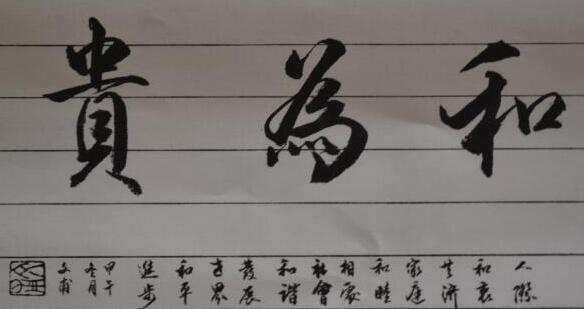 和為貴
人際
和衷
共济
家庭
和睦
相處
社會
和諧
發展
世界
和平
進步
甲午
冬月
文甫